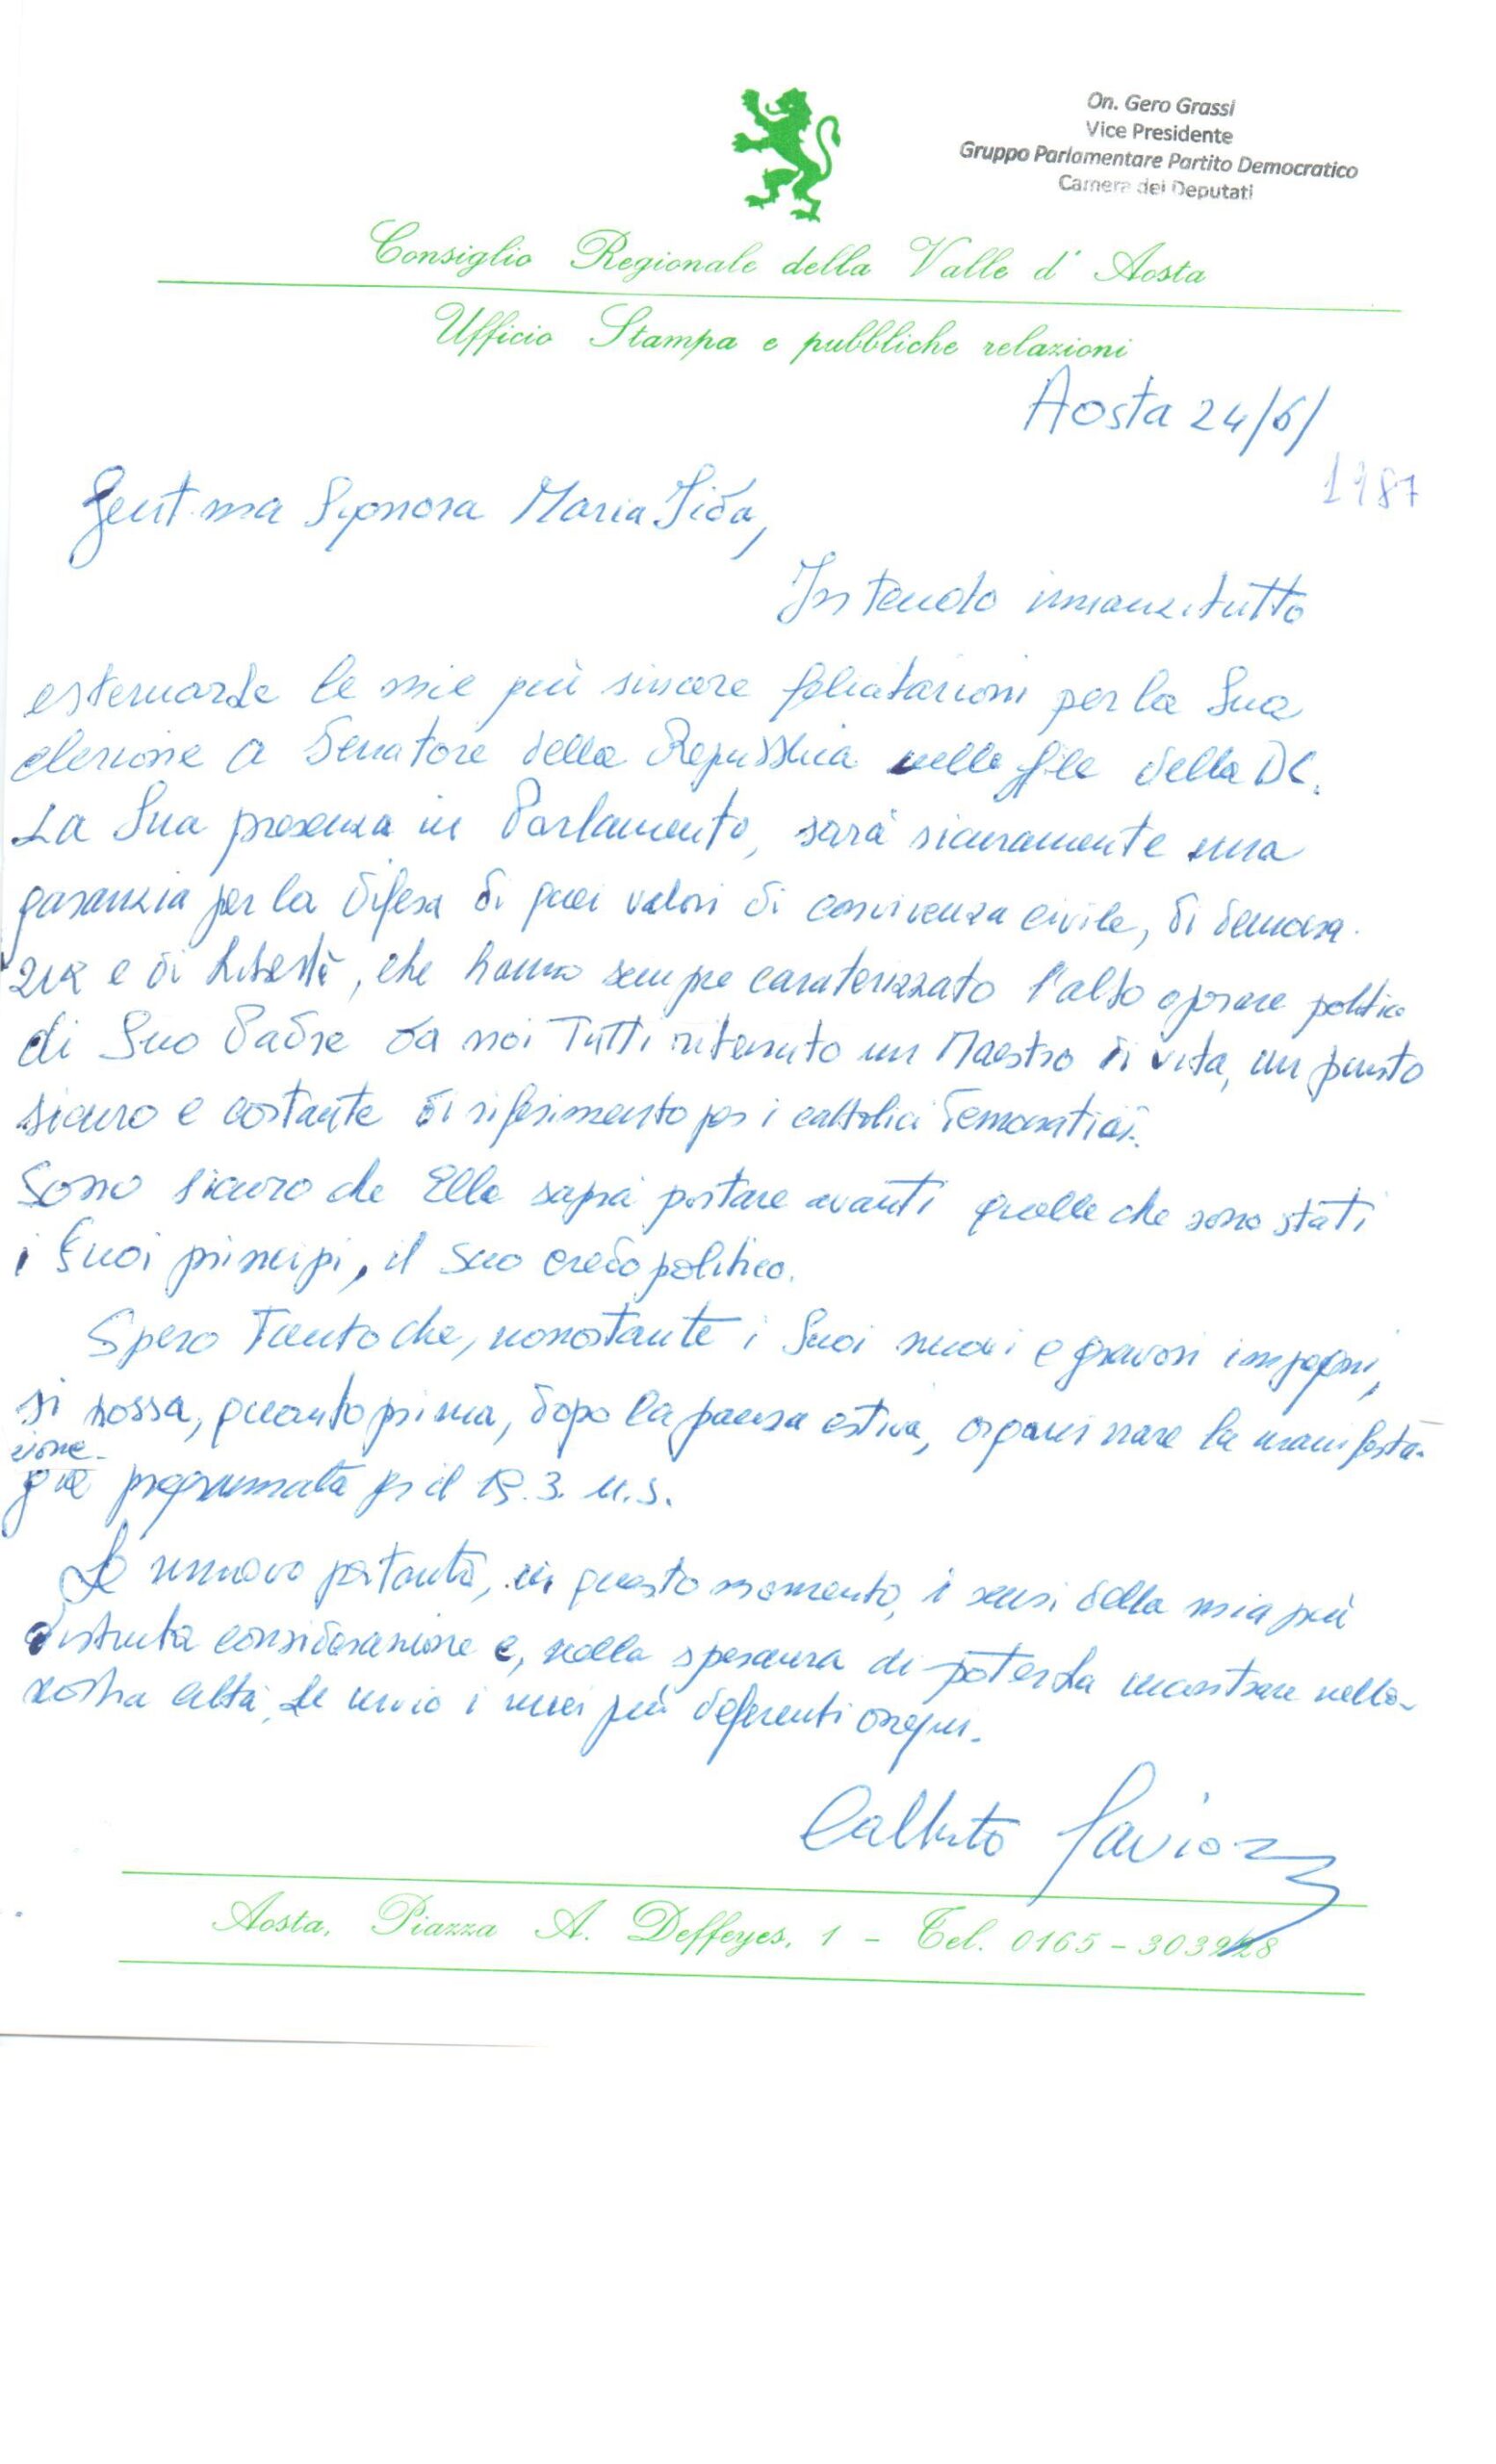 On. Gero Grassi
Vice Presidente
Gruppo Parlamentare Partito Democratico
Camera dei Deputati
Consiglio Regionale della Valle d'Aosta
Ufficio Stampa e pubbliche relazioni
Aosta 24/6/
1987
Gent.ma Signora Maria Fida,
Intendo innanzitutto
esternarLe le mie più sincere felicitazioni per la Sua
elezione a Senatore della Repubblica nelle file della DC.
La Sua presenza in Parlamento, sarà sicuramente una
garanzia per la difesa di quei valori di convivenza civile, di democra-
zia e di libertà, che hanno sempre caraterizzato l'alto operare politico
di Suo Padre da noi Tutti ritenuto un Maestro di vita, un punto
sicuro e costante di riferimento per i cattolici democratici.
Sono sicuro che Ella saprà portare avanti quelle che sono stati
i Suoi principi, il Suo credo politico.
Spero Tanto che, nonostante i Suoi nuovi e gravosi impegni,
si possa, quanto prima, dopo la pausa estiva, organizzare la manifesta-
zione
già programmata per il 19.3. u.s.
Le rinnovo pertanto, in questo momento, i sensi della mia più
distinta considerazione e, nella speranza di poterLa incontrare nella
nostra città, Le invio i miei più deferenti ossequi.
Aosta, Piazza A. Deffeyes, 1 - Tel. 0165-303